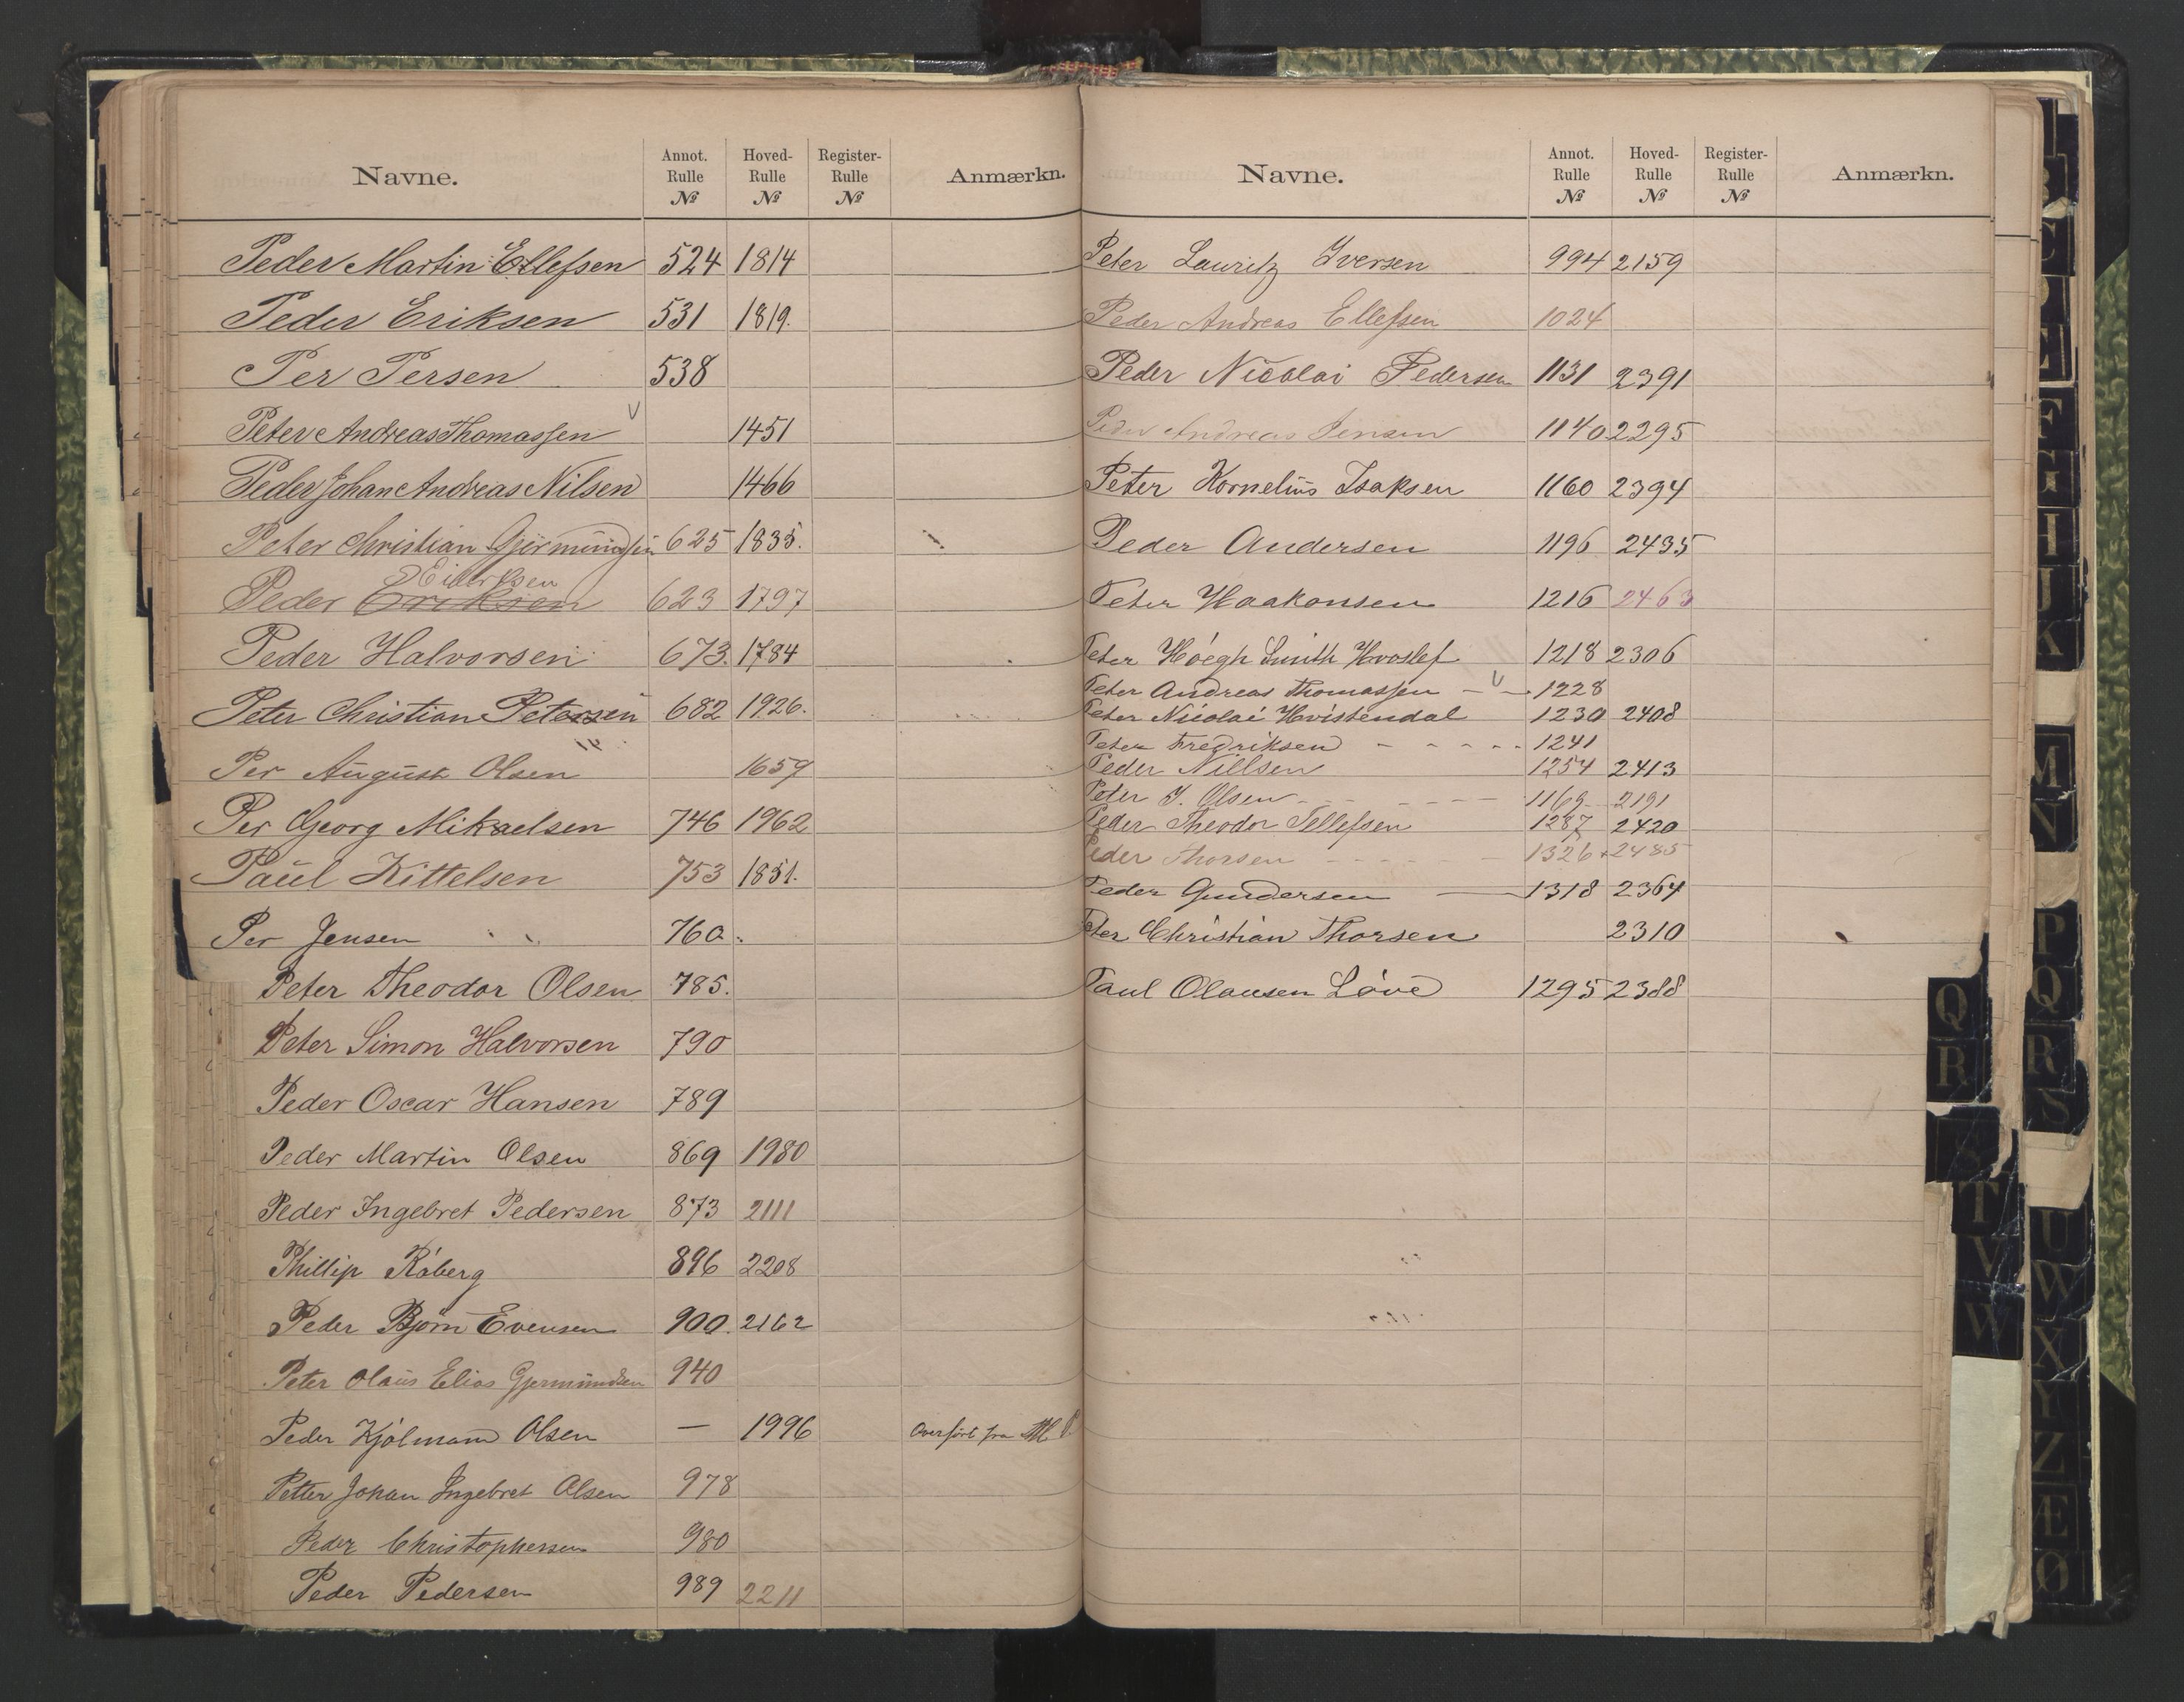 Navne. Annot. Rulle № Hoved-Rulle № Register-Rulle № Anmærkn.
Peder Martin Ellefsen 524 1814
Peder Eriksen 531 1819.
Per Persen 538
Peter Andreas Thomassen V 1451
Peder Johan Andreas Nilsen 1466
Peter Christian Gjermundsen 625 1835.
Eilerksen
Peder Eriksen 623 1797
Peder Halvorsen 673. 1784
Peter Christian Petersen 682 1926.
Per August Olsen 1659
Per Georg Mikaelsen 746 1962
Paul Kittelsen 753 1851.
Per Jensen 760.
Peter Theodor Olsen 785.
Peter Simon Halvorsen 790
Peder Oscar Hansen 789
Peder Martin Olsen 869 1980
Peder Ingebret Pedersen 873 2111
Phillip Råberg 896 2208
Peder Bjørn Evensen 900. 2162
Peter Olaus Elias Gjermundsen 940
Peder Kjølmann Olsen — 1996 Overført fra
Petter Johan Ingebret Olsen 978
Peder Christophersen 980
Peder Pedersen 989 2211
Navne. Annot. Rulle № Hoved-Rulle № Register-Rulle № Anmærkn.
Peter Lauritz Iversen 994 2159
Peder Andreas Ellefsen 1024
Peder Nicolai Pedersen 1131 2391
Peder Andreas Jensen 1140 2295
Peter Kornelius Isaksen 1160 2394
Peder Andersen 1196 2435
Peter Haakonsen 1216 2463
Peter Høegh Smith Hvoslef 1218 2306
Peter Andreas Thomassen — V — 1228
Peter Nicolai Hvistendal 1230 2408
Peter Fredriksen - - - - - 1241
Peder Nillsen 1254 2413
Peder J. Olsen - - - - - 1169 2191
Peder Theodor Tellefsen 1287 2420
Peder Thorsen - - - - - 1326 2485
Peder Gundersen — 1318 2364
Peter Christian Thorsen 2310
Paul Olausen Løve 1295 2388
Q
R
T
V
W
C
D
E
F
G
H
I
J
K
M
N
P
Q
R
S
U
W
X
Y
Z
Æ
Ø